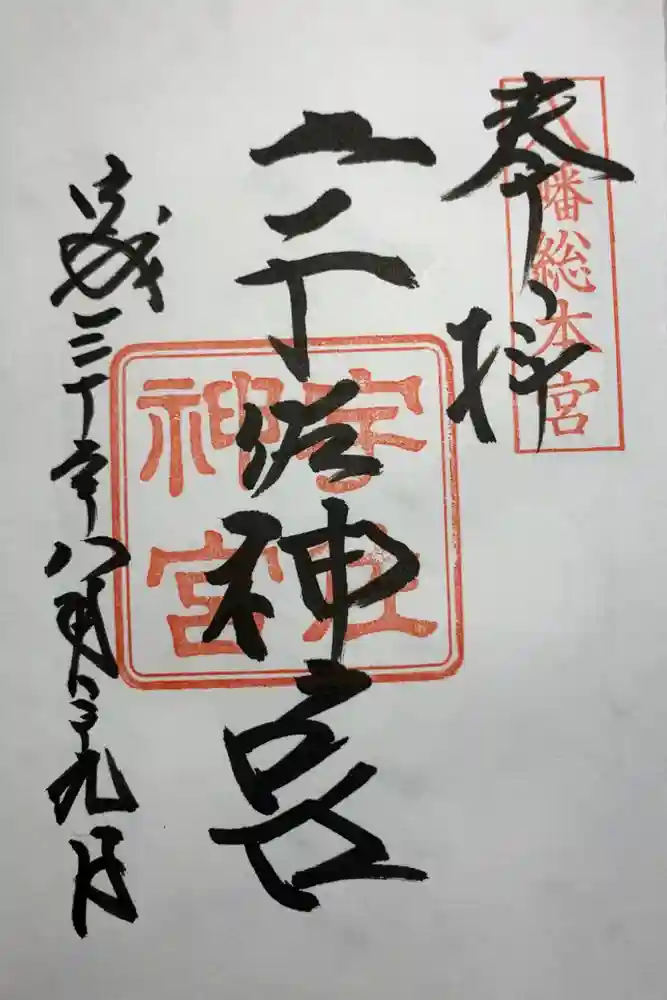 奉拝
八幡総本宮
宇佐神宮
宇佐
神宮
平成三十年八月 九日